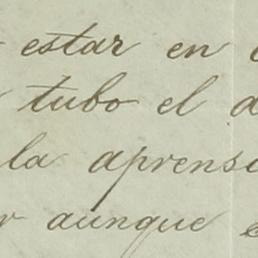 estar en
tubo el
la aprensi
aunque